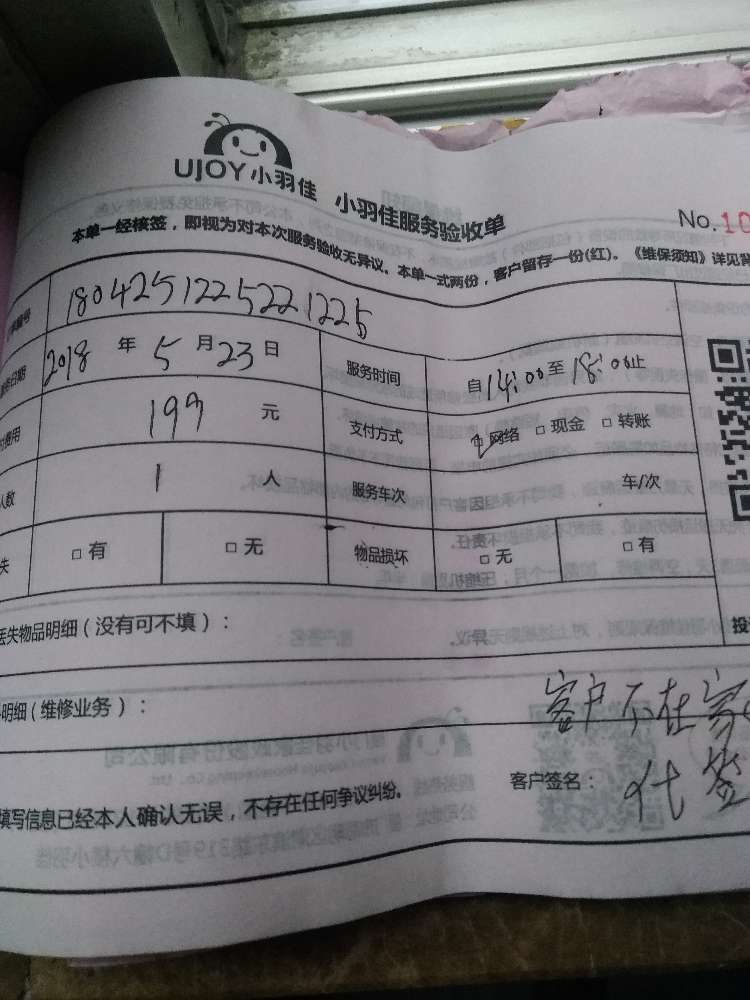 UJOY小羽佳 小羽佳服务验收单
No.10
本单一经核签，即视为对本次服务验收无异议。本单一式两份，客户留存一份(红)。《维保须知》详见背
单编号 180425122521225
务日期 2018 年 5 月 23 日 服务时间 自14:00至18:00止
费用 199 元 支付方式 ☑网络 □现金 □转账
人数 1 人 服务车次 车/次
失 □有 □无 物品损坏 □无 □有
丢失物品明细（没有可不填）： 投
明细（维修业务）：
客户不在家
填写信息已经本人确认无误，不存在任何争议纠纷。 客户签名： 代签